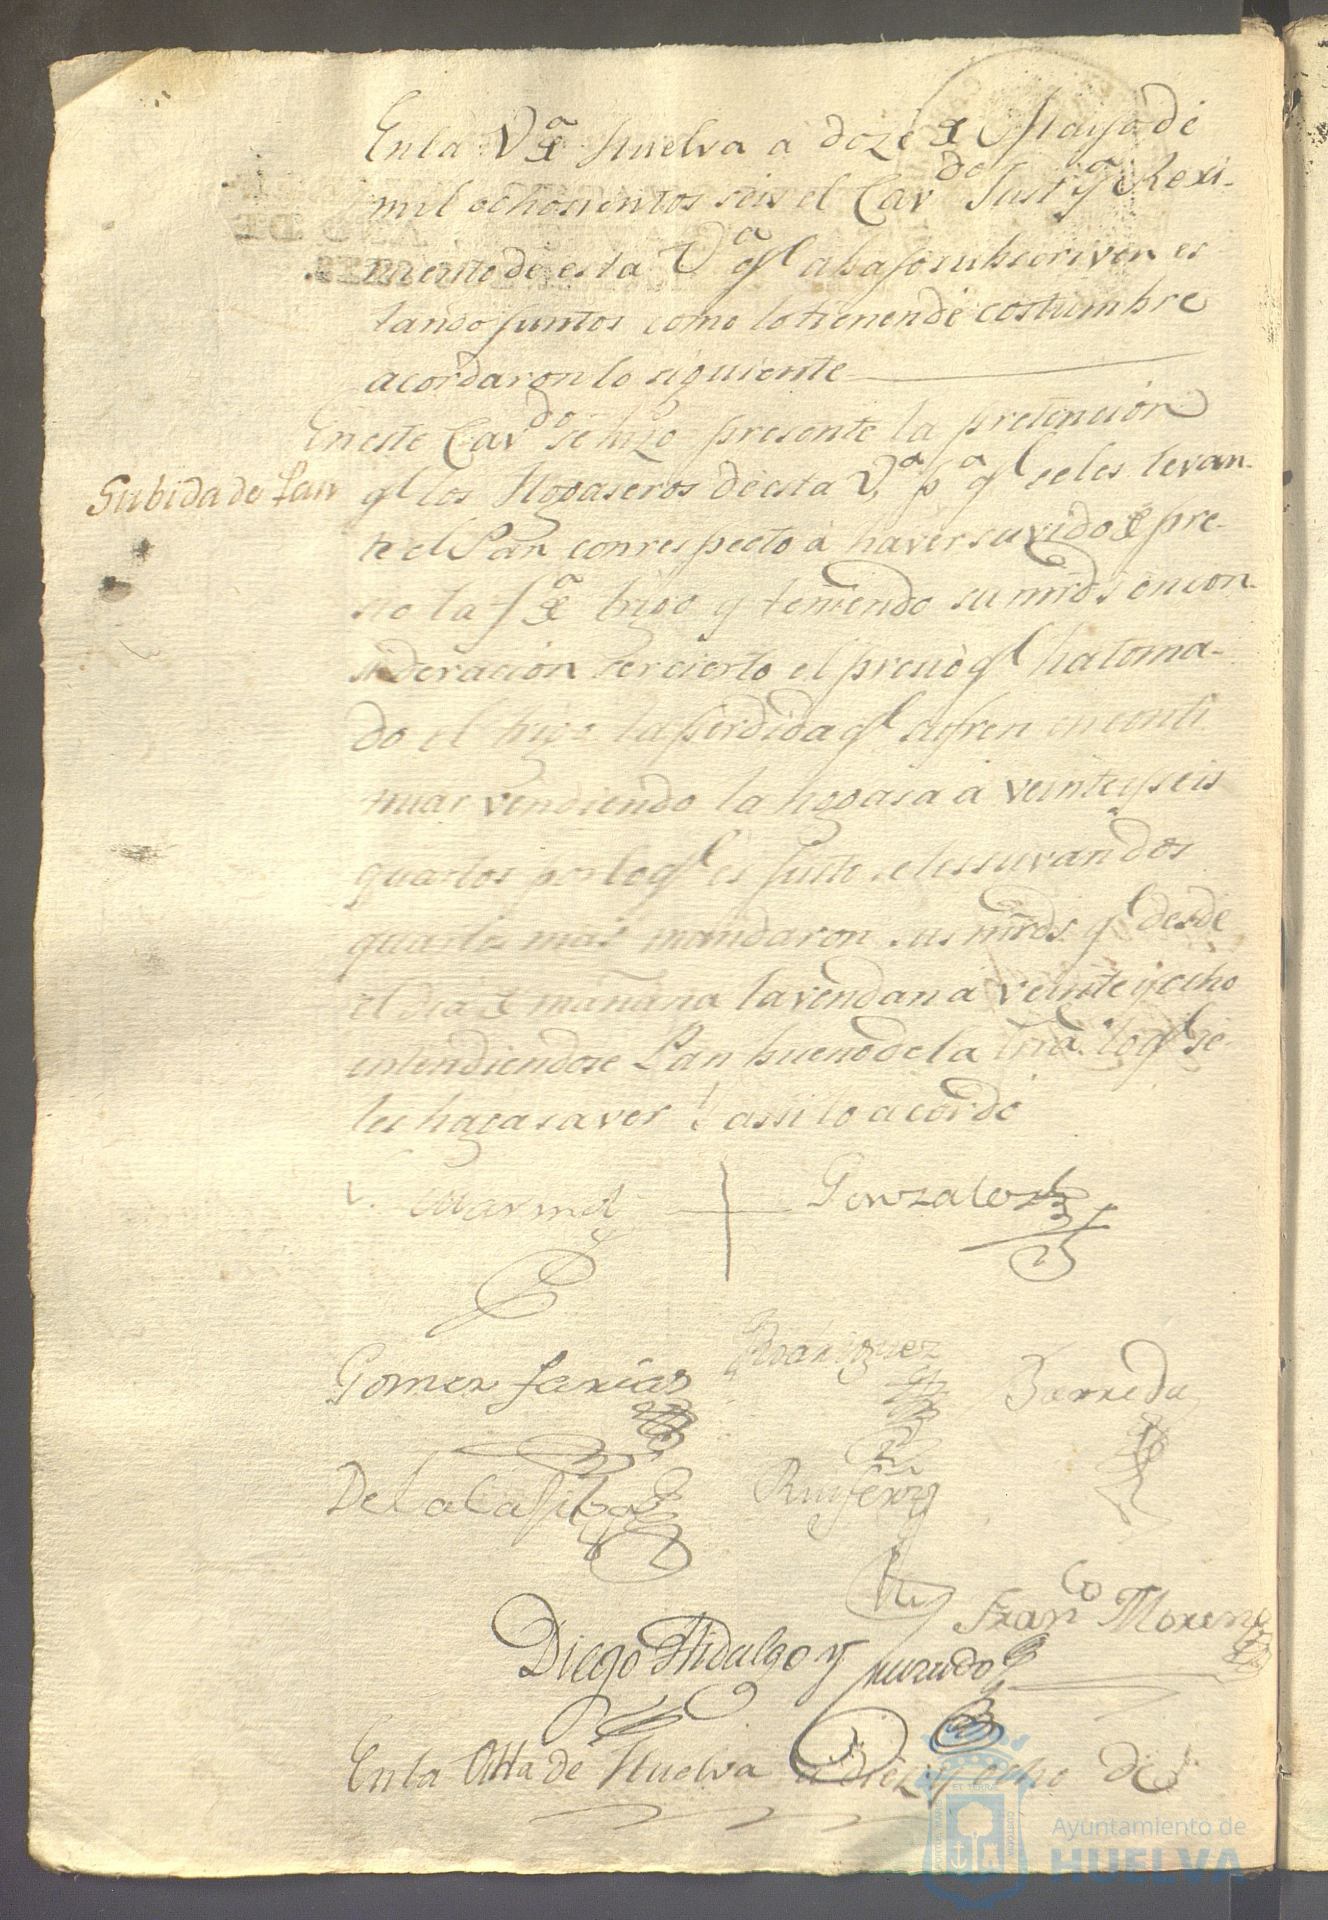 En la Vª de Huelva a doze de Mayo de
mil ochosientos seis el Cavdo Justª y Rexi-
miento de esta Vª q.l abaxo subscriven es
tando juntos como lo tienen de costumbre
acordaron lo siguiente
En este Cavdo se hizo presente la pretención
Subida de Pan
q.l los Hogaseros de esta Vª pª q.l se les levan-
te el Pan con respecto á haver suvido de pre-
sio la fª de trigo y teniendo su mrds en con-
sideración ser cierto el presio q.l ha toma-
do el trigo la perdida q.l sufren en conti
nuar vendiendo la hogasa á veinte y seis
quartos por lo q.l es justo se les suvan dos
quartos mas mandaron sus mrds q.l desde
el dia de mañana la vendan á veinte y ocho
entendiendose Pan bueno de la lo q.l se
les haga saver assi lo acordó
Marmol
Gonzalez
Gomez Farias
Rodriguez
Barreda
De la Casa
Ruifernz
Franco Moreno
Diego Hidalgo y
En la Villa de Huelva a diez y ocho de
ET TERRAE
CUSTODIA
Ayuntamiento de
HUELVA